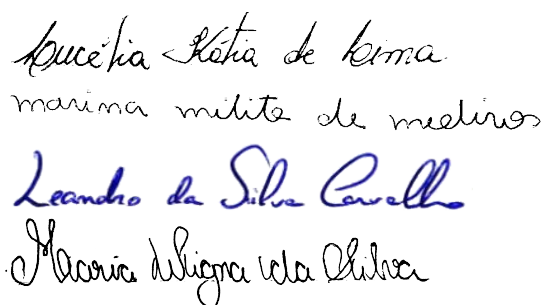 Lucélia Kátia de Lima
marina milite de medeiros
Leandro da Silva Carvalho
Maria Digna da Silva